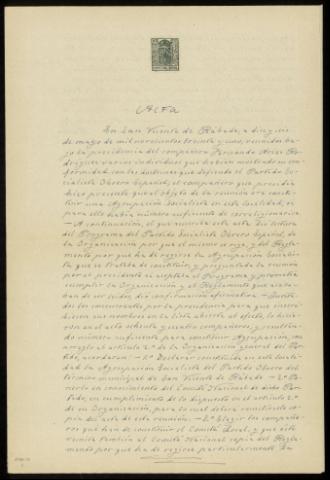 Acta
En San Vicente de Rábade, a diez y seis
de mayo de mil novecientos treinta y uno, reunidos ba-
jo la presidencia del compañero Fernando Arias Ro-
dríguez varios individuos que habían mostrado su con-
formidad con las doctrinas que defiende el Partido So-
cialista Obrero Español, el compañero que presidía
hizo presente que el objeto de la reunión era consti-
tuir una Agrupación Socialista en esta localidad, si
para ello había número suficiente de correligionarios.
— A continuación, el que suscribe esta acta dio lectura
del Programa del Partido Socialista Obrero Español, de
la Organización por que el mismo se rige, y del Regla-
mento por que ha de regirse la Agrupación Socialis-
ta que se trataba de constituir, y preguntada la reunión
por el presidente si aceptaba el Programa y prometía
cumplir la Organización y el Reglamento que acaba-
ban de ser leídos, dio contestación afirmativa. —
los concurrentes por la presidencia para que inscri-
biesen sus nombres en la lista abierta al efecto, lo hicie-
ron en el acto y cuatro compañeros, y resultan-
do número suficiente para constituir Agrupación, con
arreglo al artículo 2.º de la Organización general del Par-
tido, acordaron: — 1.º Declarar constituida en esta locali-
dad la Agrupación Socialista del Partido Obrero del
término municipal de San Vicente de Rábade. — 2.º Po-
nerlo en conocimiento del Comité Nacional de dicho Par-
tido, en cumplimiento de lo dispuesto en el artículo 2.º
de su Organización, para lo cual deberá remitírsele co-
pia del acta de esta reunión. — 3.º Elegir los compañe-
ros que han de constituir el Comité Local, y que éste
remita también al Comité Nacional copia del Regla-
mento por que ha de regirse particularmente la